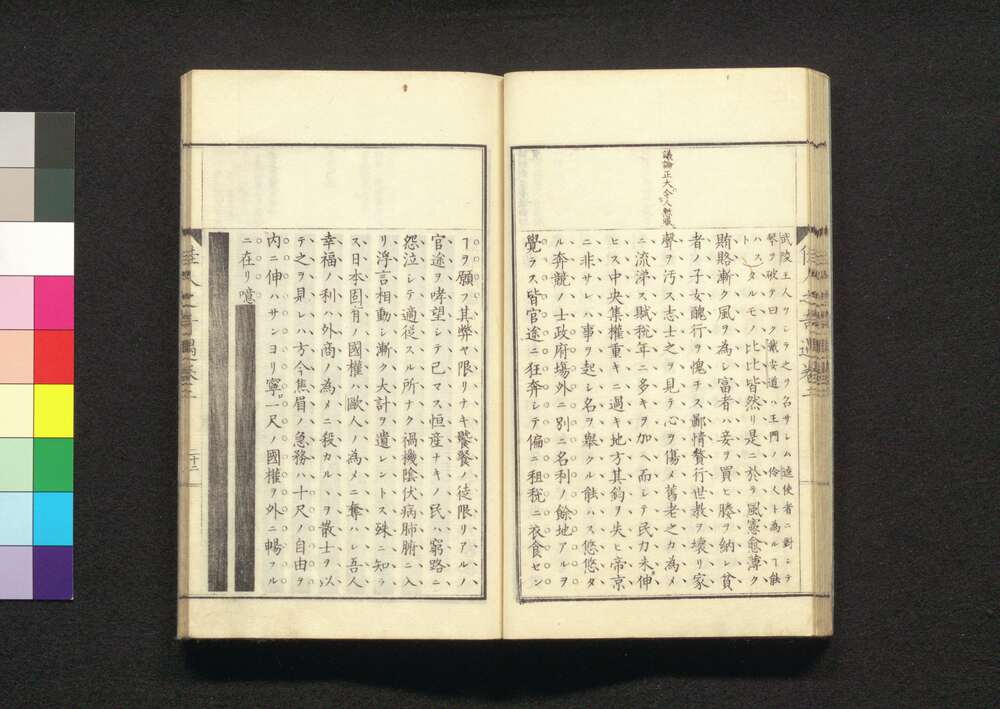 議論正大令人慙服
武陵王人ヲシテ之ヲ名サシム逵使者ニ對シテ
琴ヲ破テ曰ク戴安道ハ王門ノ伶人ト為ルヿ能
ハスト
タルモノ比比皆然リ是ニ於テ風憲愈薄ク
賄賂漸ク風ヲ為シ富者ハ妾ヲ買ヒ媵ヲ納レ貧
者ノ子女醜行ヲ愧チス鄙情贅行世教ヲ壞リ家
聲ヲ汚ス志士之ヲ見テ心ヲ傷メ舊老之カ為メ
ニ流涕ス賦税年ニ多キヲ加ヘ而シテ民力未伸
ヒス中央集權重キニ過キ地方其鈞ヲ失ヒ帝京
ニ非サレハ事ヲ起シ名ヲ舉クル能ハス悠悠タ
ル奔競ノ士政府塲外ニ別ニ名利ノ餘地アルヲ
覺ラス皆官途ニ狂奔シテ偏ニ租税ニ衣食セン
佳人之奇遇卷二
ヿヲ願フ其弊ヤ限リナキ饕餮ノ徒限リアルノ
官途ヲ哮望シテ已マス恒産ナキノ民ハ窮路ニ
怨泣シテ適從スル所ナク禍機陰伏病肺腑ニ入
リ浮言相動シ漸ク大計ヲ遺レントス殊ニ知ラ
ス日本固有ノ國權ハ歐人ノ為メニ奪ハレ吾人
幸福ノ利ハ外商ノ為メニ殺カルヽヲ散士ヲ以
テ之ヲ見レハ方今焦眉ノ急務ハ十尺ノ自由ヲ
内ニ伸ハサンヨリ寧一尺ノ國權ヲ外ニ暢フル
ニ在リ噫
佳人之奇遇卷二